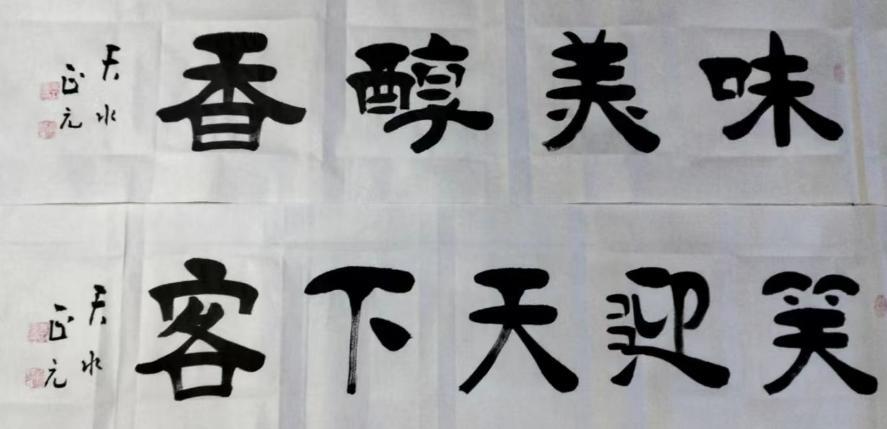 味美醇香
天水
正元
笑迎天下客
天水
正元